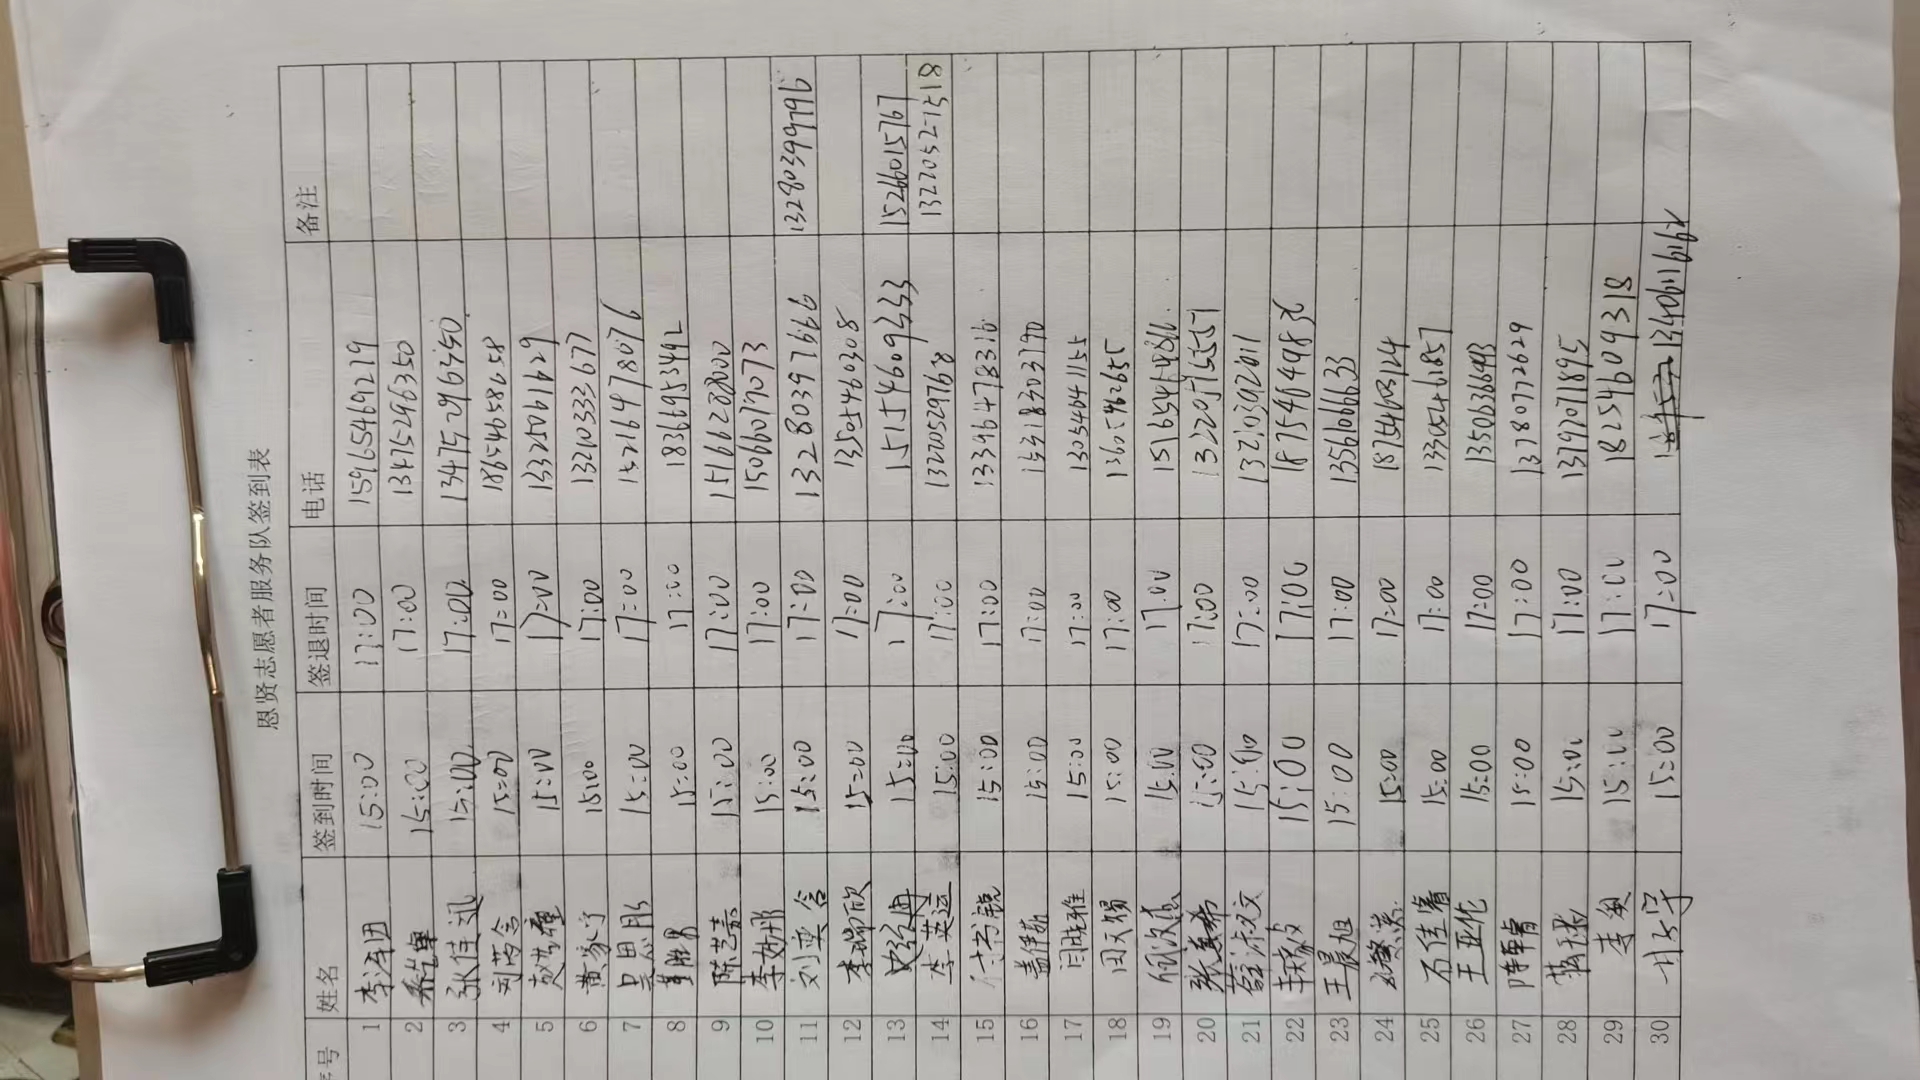 恩贤志愿者服务队签到表
序号 姓名 签到时间 签退时间 电话 备注
1 李泽田 15:00 17:00 15965469219
2 15:00 17:00 13475296350
3 张佳迅 15:00 17:00 13475296350
4 刘芮含 15:00 17:00 18654658658
5 15:00 17:00 13325061629
6 黄家宁 15:00 17:00 13210333677
7 吴思彤 15:00 17:00 15216478076
8 15:00 17:00 18366953492
9 陈艺嘉 15:00 17:00 15166228800
10 李妙彤 15:00 17:00 15066079073
11 刘奕含 15:00 17:00 13280397666 13280399796
12 李瑞欣 15:00 17:00 13505460308
13 15:00 17:00 15154609333 15266015767
14 李英运 15:00 17:00 13220521518
15 付书锐 15:00 17:00 13396478316
16 15:00 17:00 15318303790
17 闫晓雅 15:00 17:00 13054641155
18 田天赐 15:00 17:00 13605462655
19 15:00 17:00
20 15:00 17:00
21 15:00 17:00 13210392011
22 15:00 17:00 18754649836
23 王晨旭 15:00 17:00 13561066633
24 15:00 17:00
25 石佳睿 15:00 17:00 13305461857
26 15:00 17:00 13506366493
27 陈卓睿 15:00 17:00 13780772629
28 15:00 17:00 13792071895
29 李奥 15:00 17:00 18254609318
30 15:00 17:00 13406116162